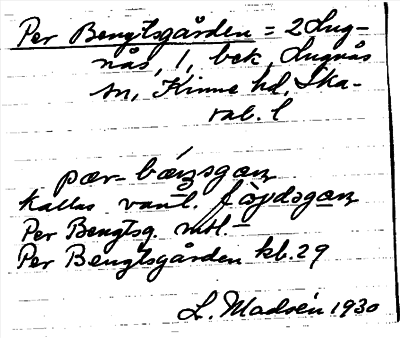 Per Bengtsgården = 2 Lug-
nås, 1, bek. Lugnås
sn, Kinne hd, Ska-
rab. l
pær-bæŋsgaɲ
kallas vanl. fàydsgaɲ
Per Bengtsg. mtl. –
Per Bengtsgården kb. 29
L. Madsén 1930